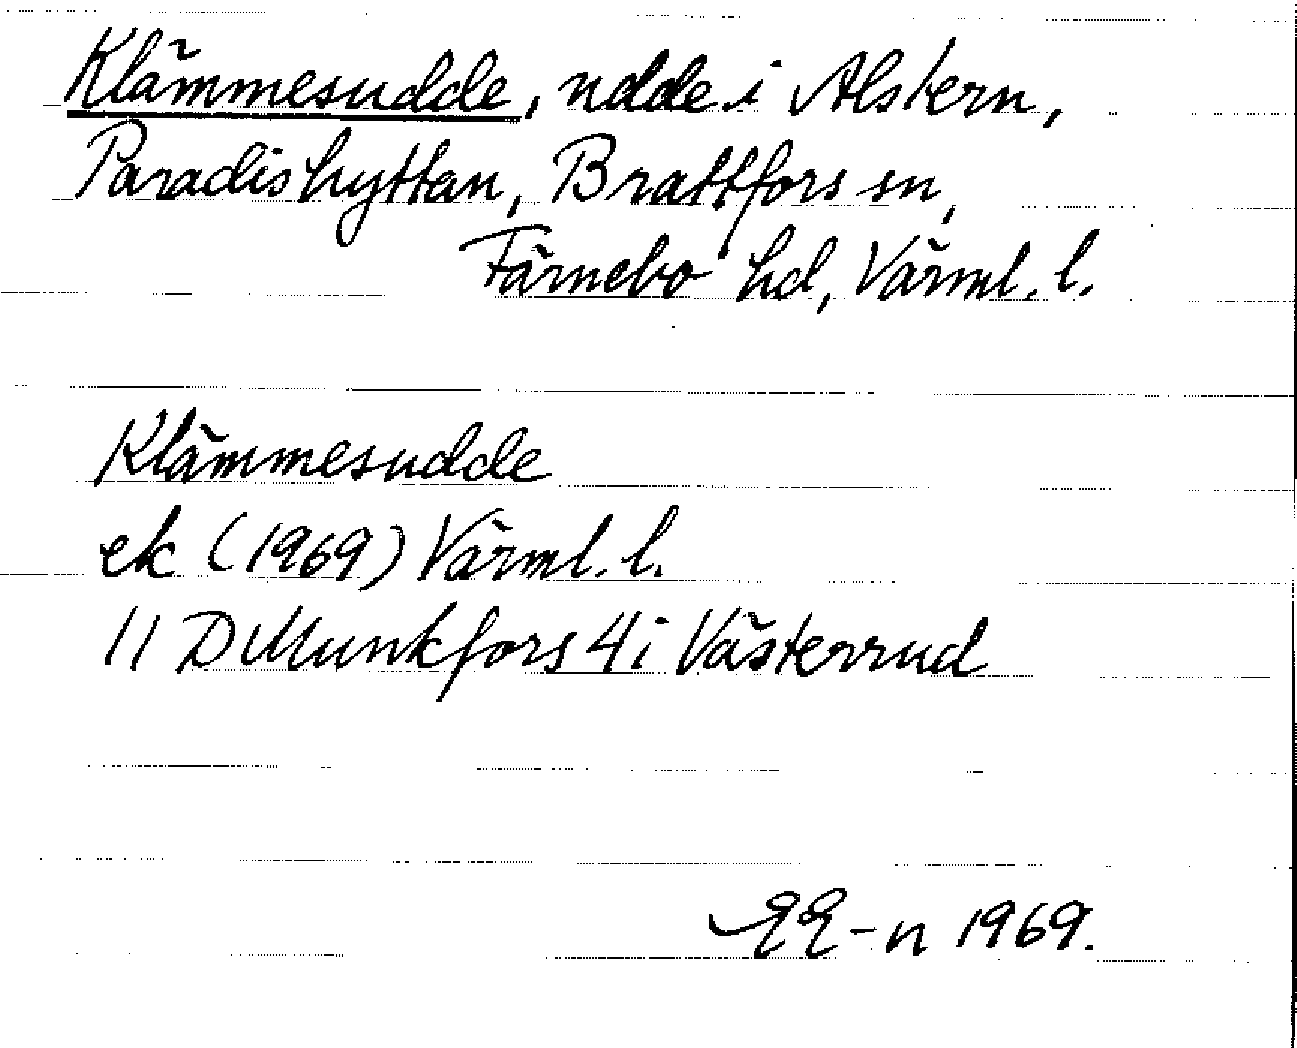 Klämmesudde, udde i Alstern,
Paradishyttan, Brattfors sn,
Färnebo hd, Värml. l.
Klämmesudde
ek (1969) Värml. l.
11 D Munkfors 4 i Västerrud
EE-n 1969.